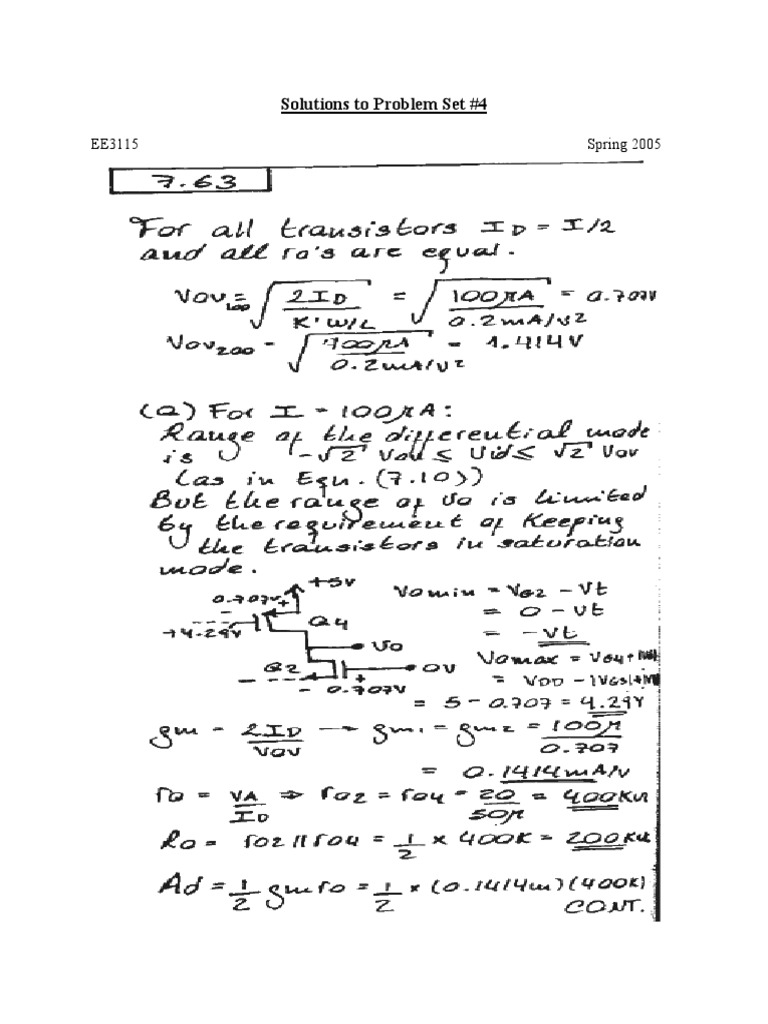 Solutions to Problem Set #4
EE3115 Spring 2005
7.63
For all transistors ID = I/2
and all ro's are equal.
Vov100 = √(2ID / K'W/L) = √(100μA / 0.2mA/V2) = 0.707V
Vov200 = √(400μA / 0.2mA/V2) = 1.414V
(a) For I = 100μA:
Range of the differential mode
is -√2 Vov ≤ Vid ≤ √2 Vov
(as in Eqn. (7.10))
But the range of Vo is limited
by the requirement of Keeping
the transistors in saturation
mode.
+5V
0.707V +
-
Q4
+4.29V
Vo
Q2
0V
- 0.707V +
Vomin = VG2 - Vt
= 0 - Vt
= -Vt
Vomax = VG4 + |Vt|
= VDD - |VGS|+|Vt|
= 5 - 0.707 = 4.29V
gm = 2ID / VOV → gm1 = gm2 = 100μ / 0.707
= 0.1414mA/V
ro = VA / ID ⇒ ro2 = ro4 = 20 / 50μ = 400KΩ
Ro = ro2 || ro4 = 1/2 × 400K = 200KΩ
Ad = 1/2 gm ro = 1/2 × (0.1414m)(400K)
CONT.